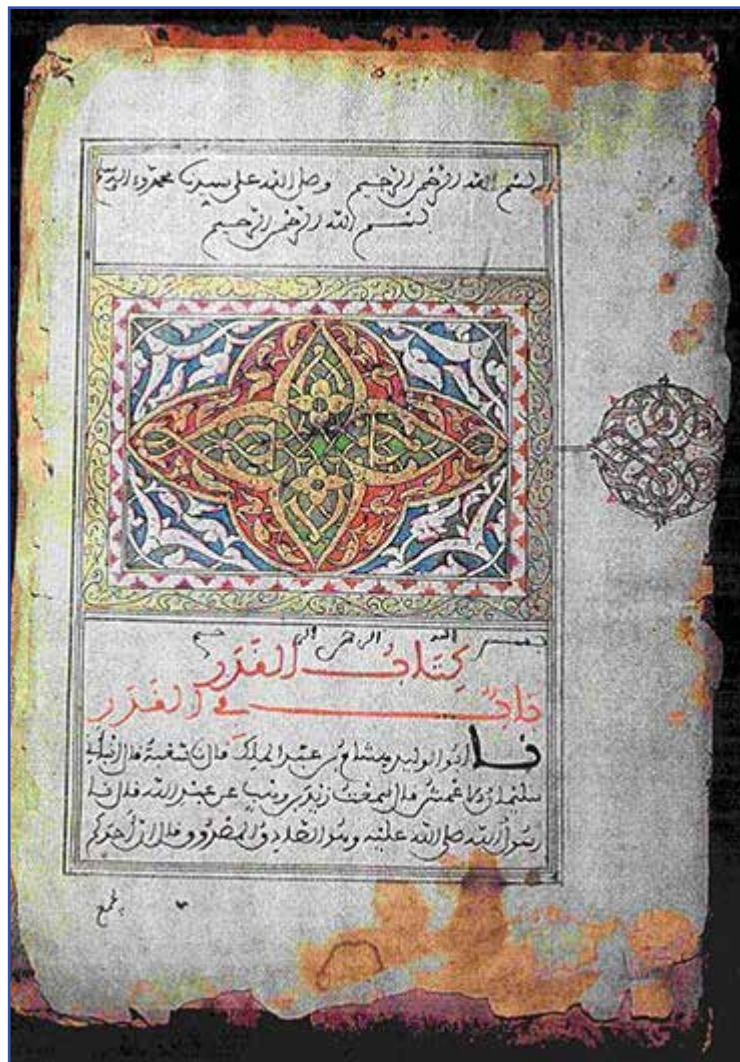 بسم الله الرحمن الرحيم وصل الله على سيدنا محمد وءاله
بسم الله الرحمن الرحيم
بسم الله الرحمن الرحيم
كِتَابُ القَدَرِ
بَابٌ في القَدَرِ
نا أبو الوليد هشام بن عبد الملك قال نا شعبة قال أنبأنا
سليمان الأعمش قال سمعت زيد بن وهب عن عبد الله قال نا
رسول الله صلى الله عليه وهو الصادق المصدوق قال إن أحدكم
يجمع